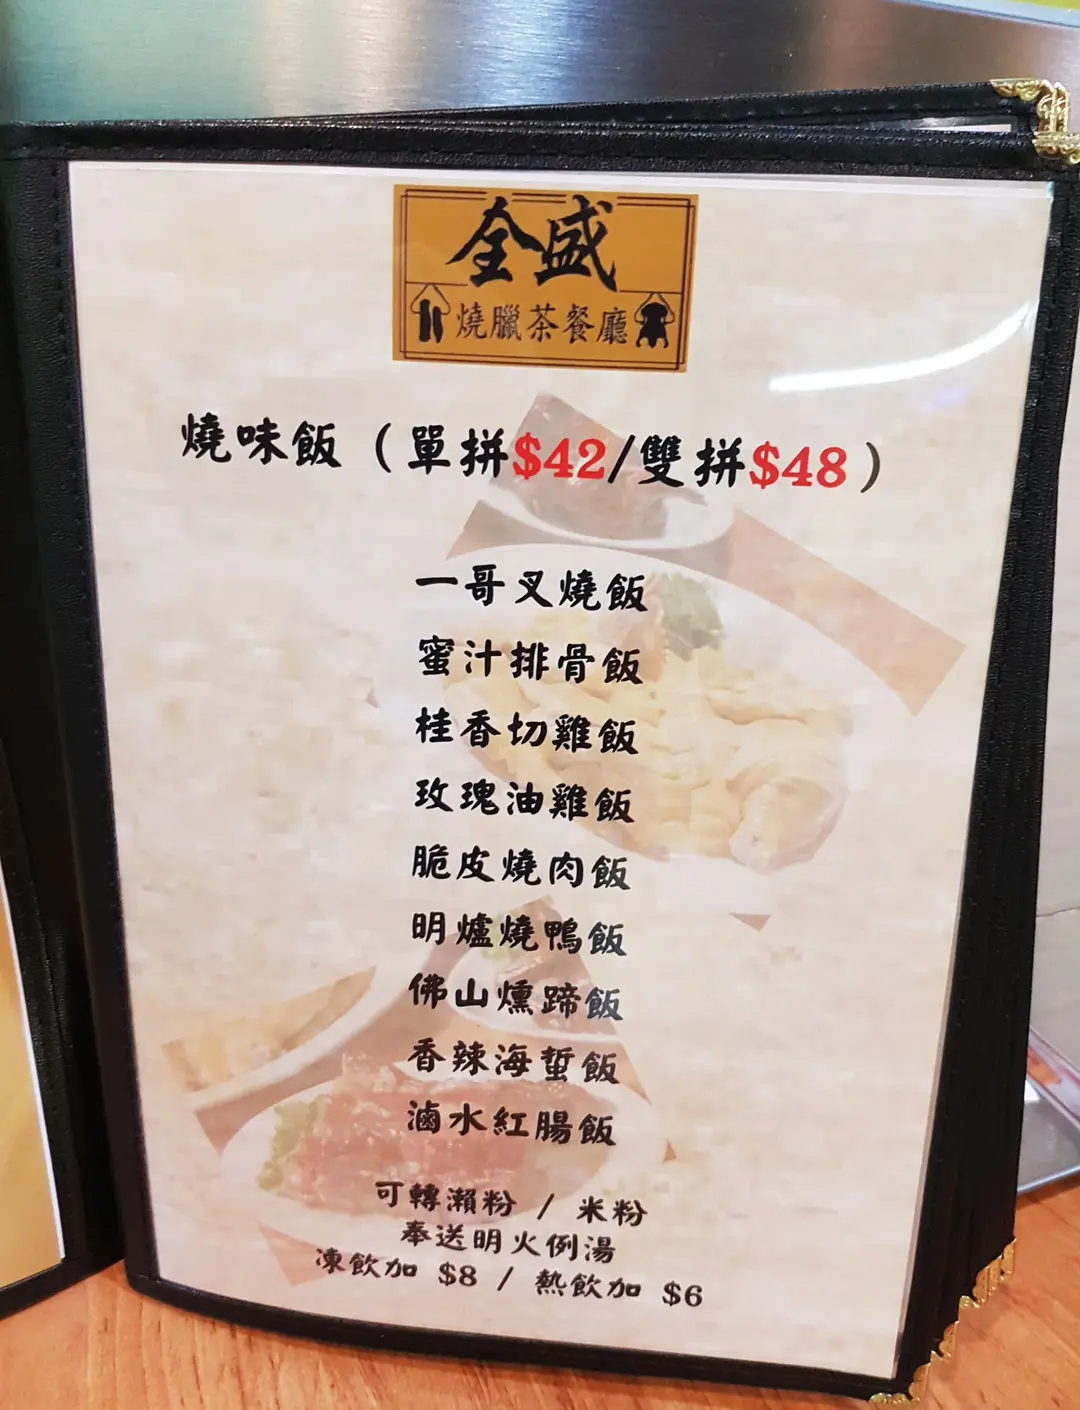 全盛
燒臘茶餐廳
燒味飯（單拼$42/雙拼$48）
一哥叉燒飯
蜜汁排骨飯
桂香切雞飯
玫瑰油雞飯
脆皮燒肉飯
明爐燒鴨飯
佛山燻蹄飯
香辣海蜇飯
滷水紅腸飯
可轉瀨粉 / 米粉
奉送明火例湯
凍飲加 $8 / 熱飲加 $6